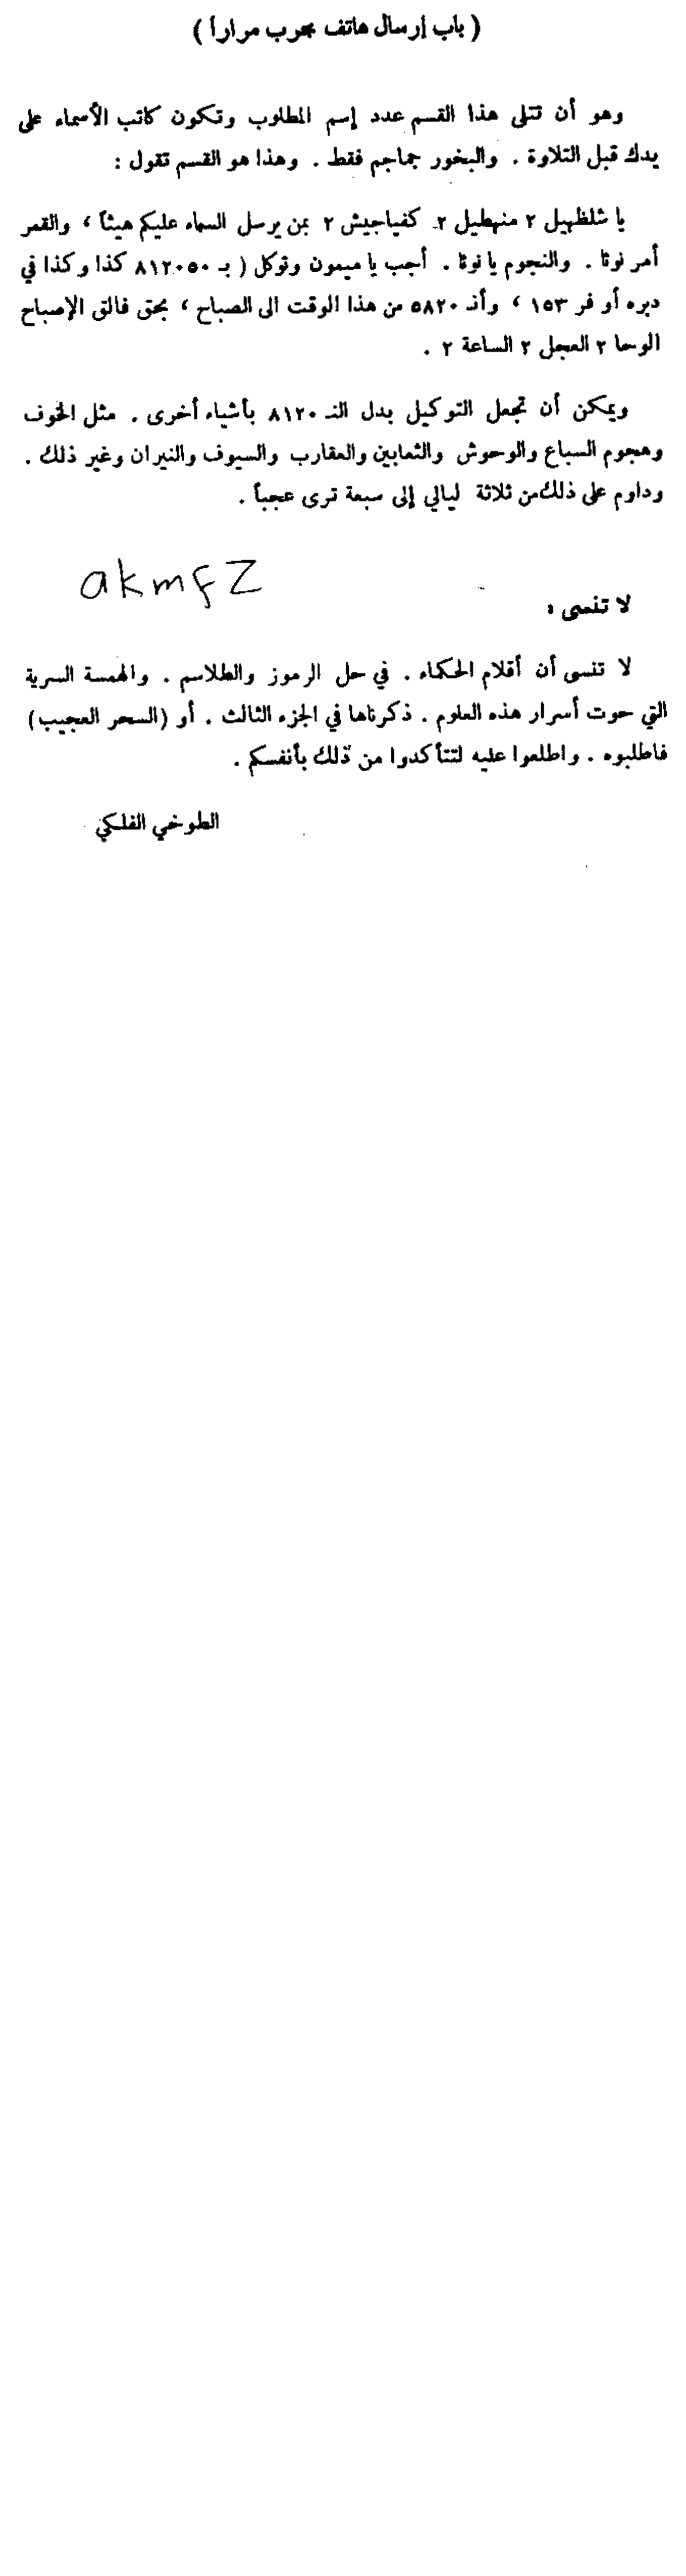 ( باب إرسال هاتف مجرب مراراً )
وهو أن تتلى هذا القسم عدد إسم المطلوب وتكون كاتب الأسماء على
يدك قبل التلاوة . والبخور جماجم فقط . وهذا هو القسم تقول :
يا شلظهيل ٢ منهطيل ٢ كفياجيش ٢ بمن يرسل السماء عليكم هيثاً ، والقمر
أمر نوثا . والنجوم يا نوثا . أجب يا ميمون وتوكل ( بـ ٨١٢٠٥٠ كذا وكذا في
دبره أو فر ١٥٣ ، وأنـ ٥٨٢٠ من هذا الوقت الى الصباح ، بحق فالق الإصباح
الوحا ٢ العجل ٢ الساعة ٢ .
ويمكن أن تجعل التوكيل بدل النـ ٨١٢٠ بأشياء أخرى . مثل الخوف
وهجوم السباع والوحوش والثعابين والعقارب والسيوف والنيران وغير ذلك .
وداوم على ذلك من ثلاثة ليالي إلى سبعة ترى عجباً .
akmfz
لا تنسى :
لا تنسى أن أقلام الحكماء . في حل الرموز والطلاسم . والهمسة السرية
التي حوت أسرار هذه العلوم . ذكرناها في الجزء الثالث . أو (السحر العجيب)
فاطلبوه . واطلعوا عليه لتتأكدوا من ذلك بأنفسكم .
الطوخي الفلكي